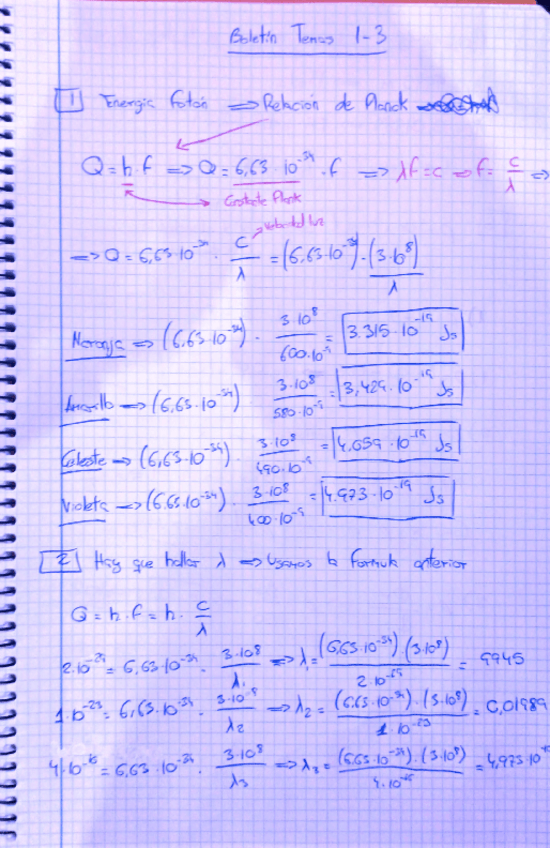 Boletín Temas 1-3
1 Energía fotón ⇒ Relación de Planck
Q = h · f ⇒ Q = 6,63 · 10⁻³⁴ · f ⇒ λf = c ⇒ f = c/λ ⇒
Constante Plank
velocidad luz
⇒ Q = 6,63 · 10⁻³⁴ · c/λ = (6,63 · 10⁻³⁴) · (3 · 10⁸)/λ
Naranja ⇒ (6,63 · 10⁻³⁴) · 3 · 10⁸/600 · 10⁻⁹ = 3.315 · 10⁻¹⁹ Js
Amarillo ⇒ (6,63 · 10⁻³⁴) 3 · 10⁸/580 · 10⁻⁹ = 3,429 · 10⁻¹⁹ Js
Celeste ⇒ (6,63 · 10⁻³⁴) · 3 · 10⁸/490 · 10⁻⁹ = 4,059 · 10⁻¹⁹ Js
Violeta ⇒ (6,63 · 10⁻³⁴) · 3 · 10⁸/400 · 10⁻⁹ = 4,973 · 10⁻¹⁹ Js
2 Hay que hallar λ ⇒ Usamos la formula anterior
Q = h · f = h · c/λ
= 6,63 · 10⁻³⁴ · 3 · 10⁸/λ₁ ⇒ λ₁ = (6,63 · 10⁻³⁴) · (3 · 10⁸)/ = 9945
1 · 10⁻²³ = 6,63 · 10⁻³⁴ · /λ₂ ⇒ λ₂ = (6,63 · 10⁻³⁴) · (3 · 10⁸)/1 · 10⁻²³ = 0,01989
= 6,63 · 10⁻³⁴ · 3 · 10⁸/λ₃ ⇒ λ₃ = (6,63 · 10⁻³⁴) · (3 · 10⁸)/ = 4,973 · 10